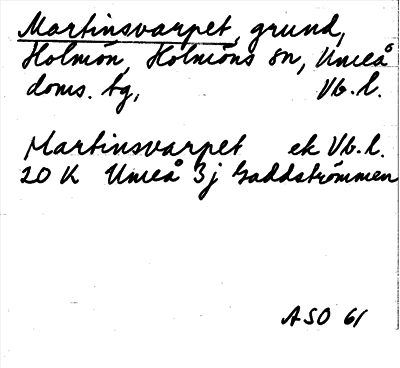 Martinsvarpet, grund,
Holmön, Holmöns sn, Umeå
doms. tg, Vb. l.
Martinsvarpet ek Vb. l.
20 K Umeå 3j Gaddströmmen
ASO 61